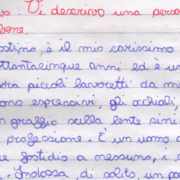 Vi descrivo una perso
bene.
ostino, è il mio carissimo
ttantacinque anni ed è un
tra piccoli lavoretti da me
ono espressivi, gli occhiali,
n graffio sulla lente sini
professione. È un uomo
re fastidio a nessuno, i e
. Indossa, di solito, un pa